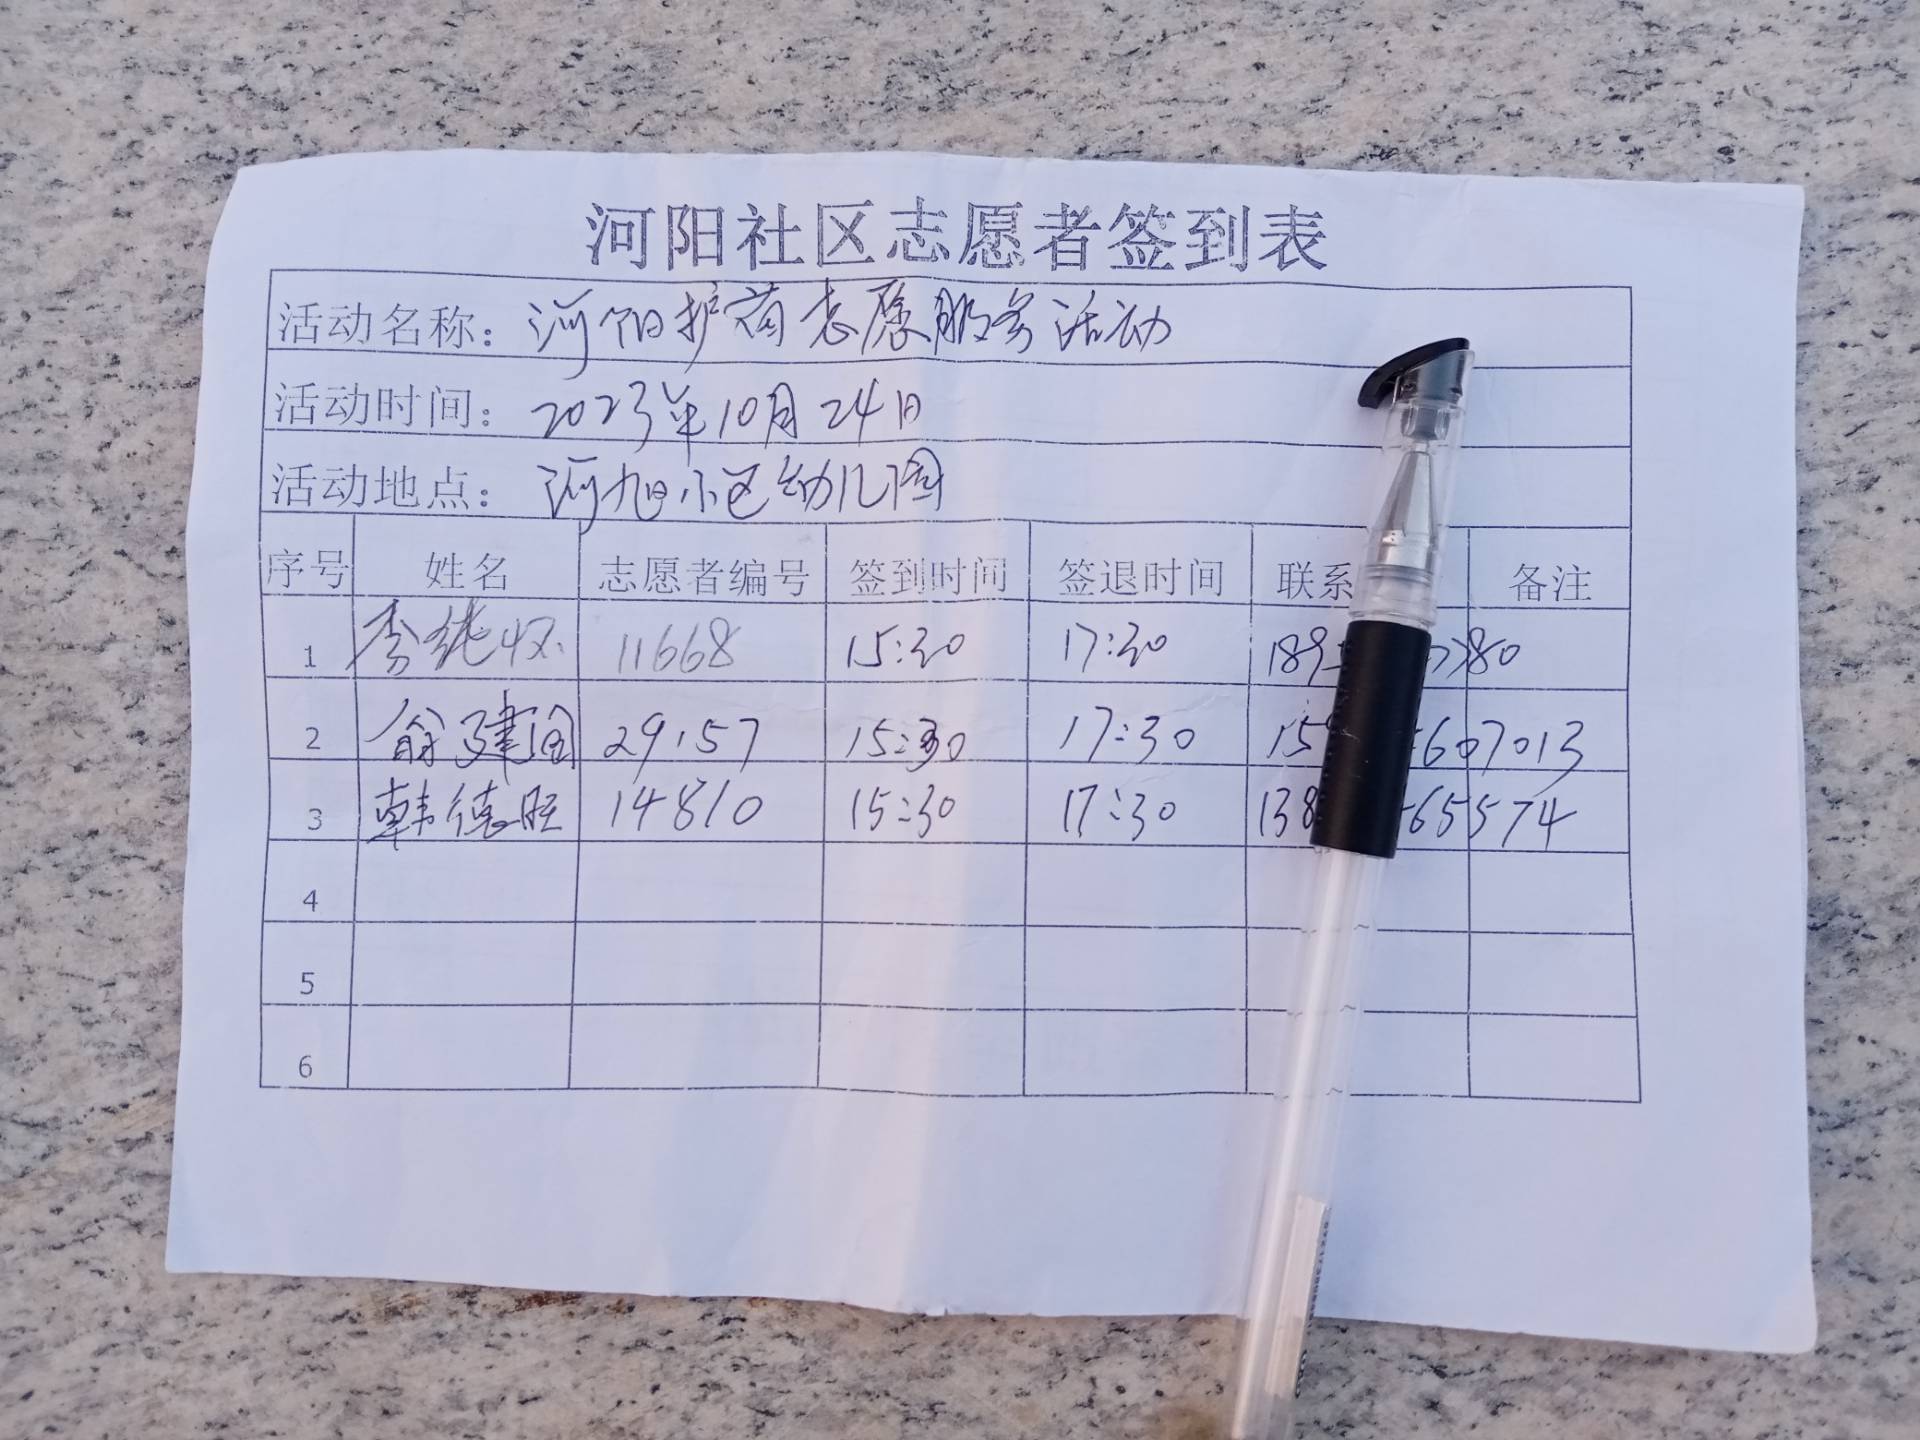 河阳社区志愿者签到表
活动名称：河阳护苗志愿服务活动
活动时间：2023年10月24日
活动地点：河旭小区幼儿园
序号 姓名 志愿者编号 签到时间 签退时间 联系 备注
1 李纯 11668 15:30 17:30 189 780
2 俞建 29157 15:30 17:30 15 607013
3 韩德旺 14810 15:30 17:30 138 65574
4
5
6